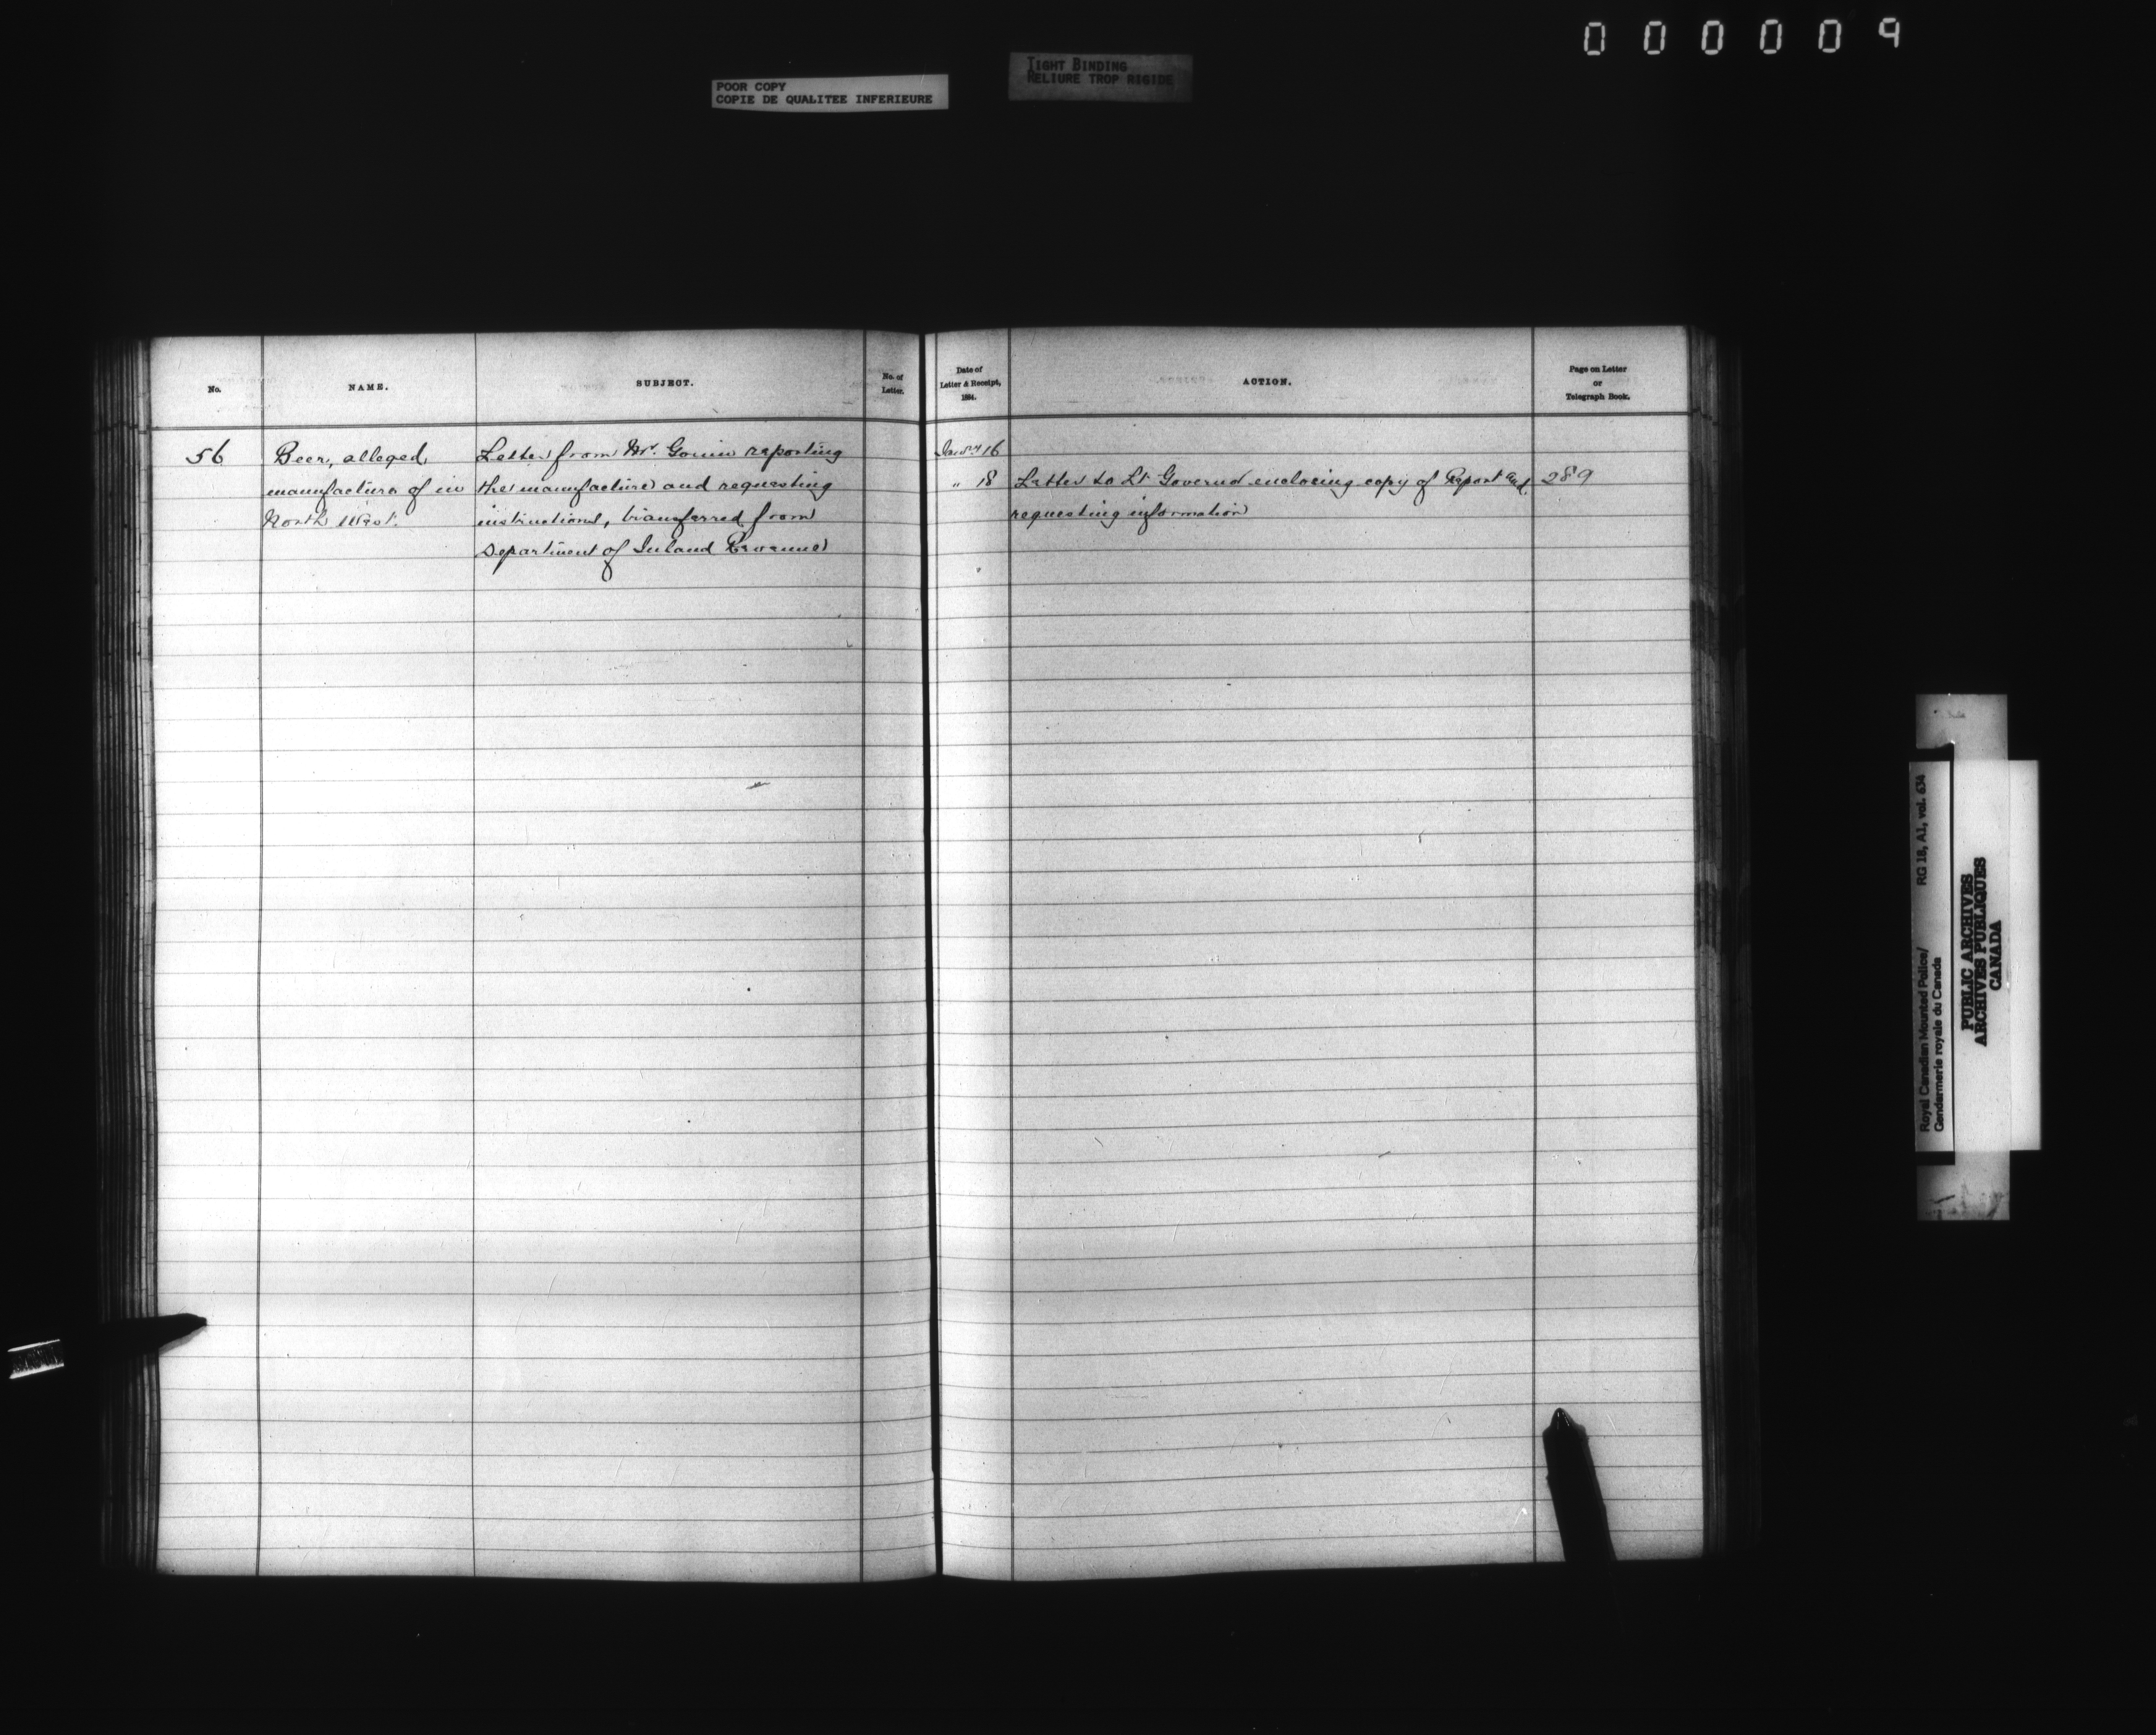 000009
POOR COPY
COPIE DE QUALITEE INFERIEURE
TIGHT BINDING
RELIURE TROP RIGIDE
No.
NAME.
SUBJECT.
No. of
Letter.
Date of
Letter & Receipt,
1884.
ACTION.
Page on Letter
or
Telegraph Book.
56
Beer, alleged
manufacture of in
North West.
Letter from Mr. Gouin reporting
the manufacture and requesting
instructions, transferred from
Department of Inland Revenue
Jany 16
" 18
Letter to Lt Governor enclosing copy of Report and
requesting information
289
Royal Canadian Mounted Police/ RG 18, A1, vol. 634
Gendarmerie royale du Canada
PUBLIC ARCHIVES
ARCHIVES PUBLIQUES
CANADA